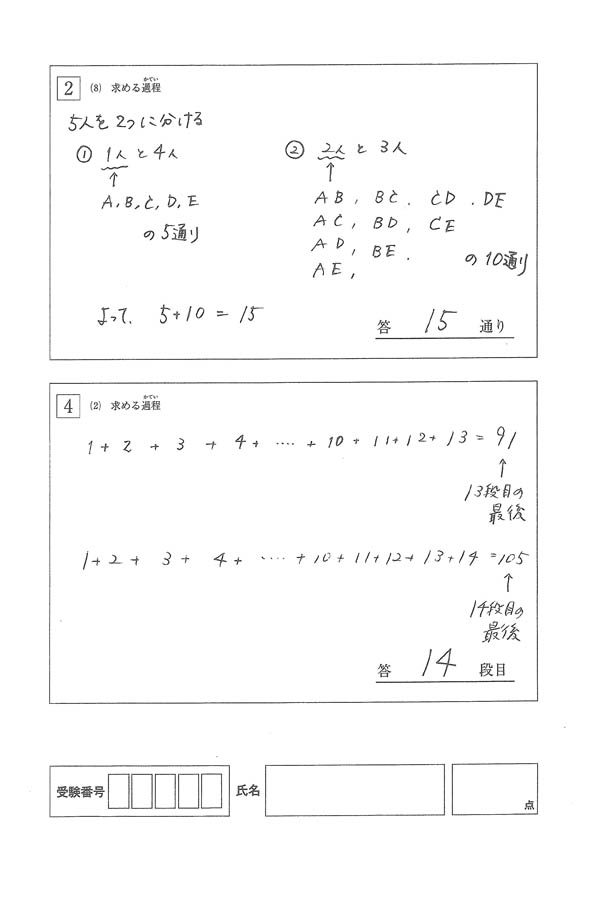 2 (8) 求める過程
かてい
5人を2つに分ける
① 1人と4人
↑
A, B, C, D, E
の5通り
② 2人と3人
↑
AB, BC. CD. DE
AC, BD, CE
AD, BE.
AE,
の10通り
よって、 5+10=15
答 15 通り
4 (2) 求める過程
かてい
1+2+3+4+‥‥+10+11+12+13=91
↑
13段目の
最後
1+2+3+4+‥‥+10+11+12+13+14=105
↑
14段目の
最後
答 14 段目
受験番号
氏名
点